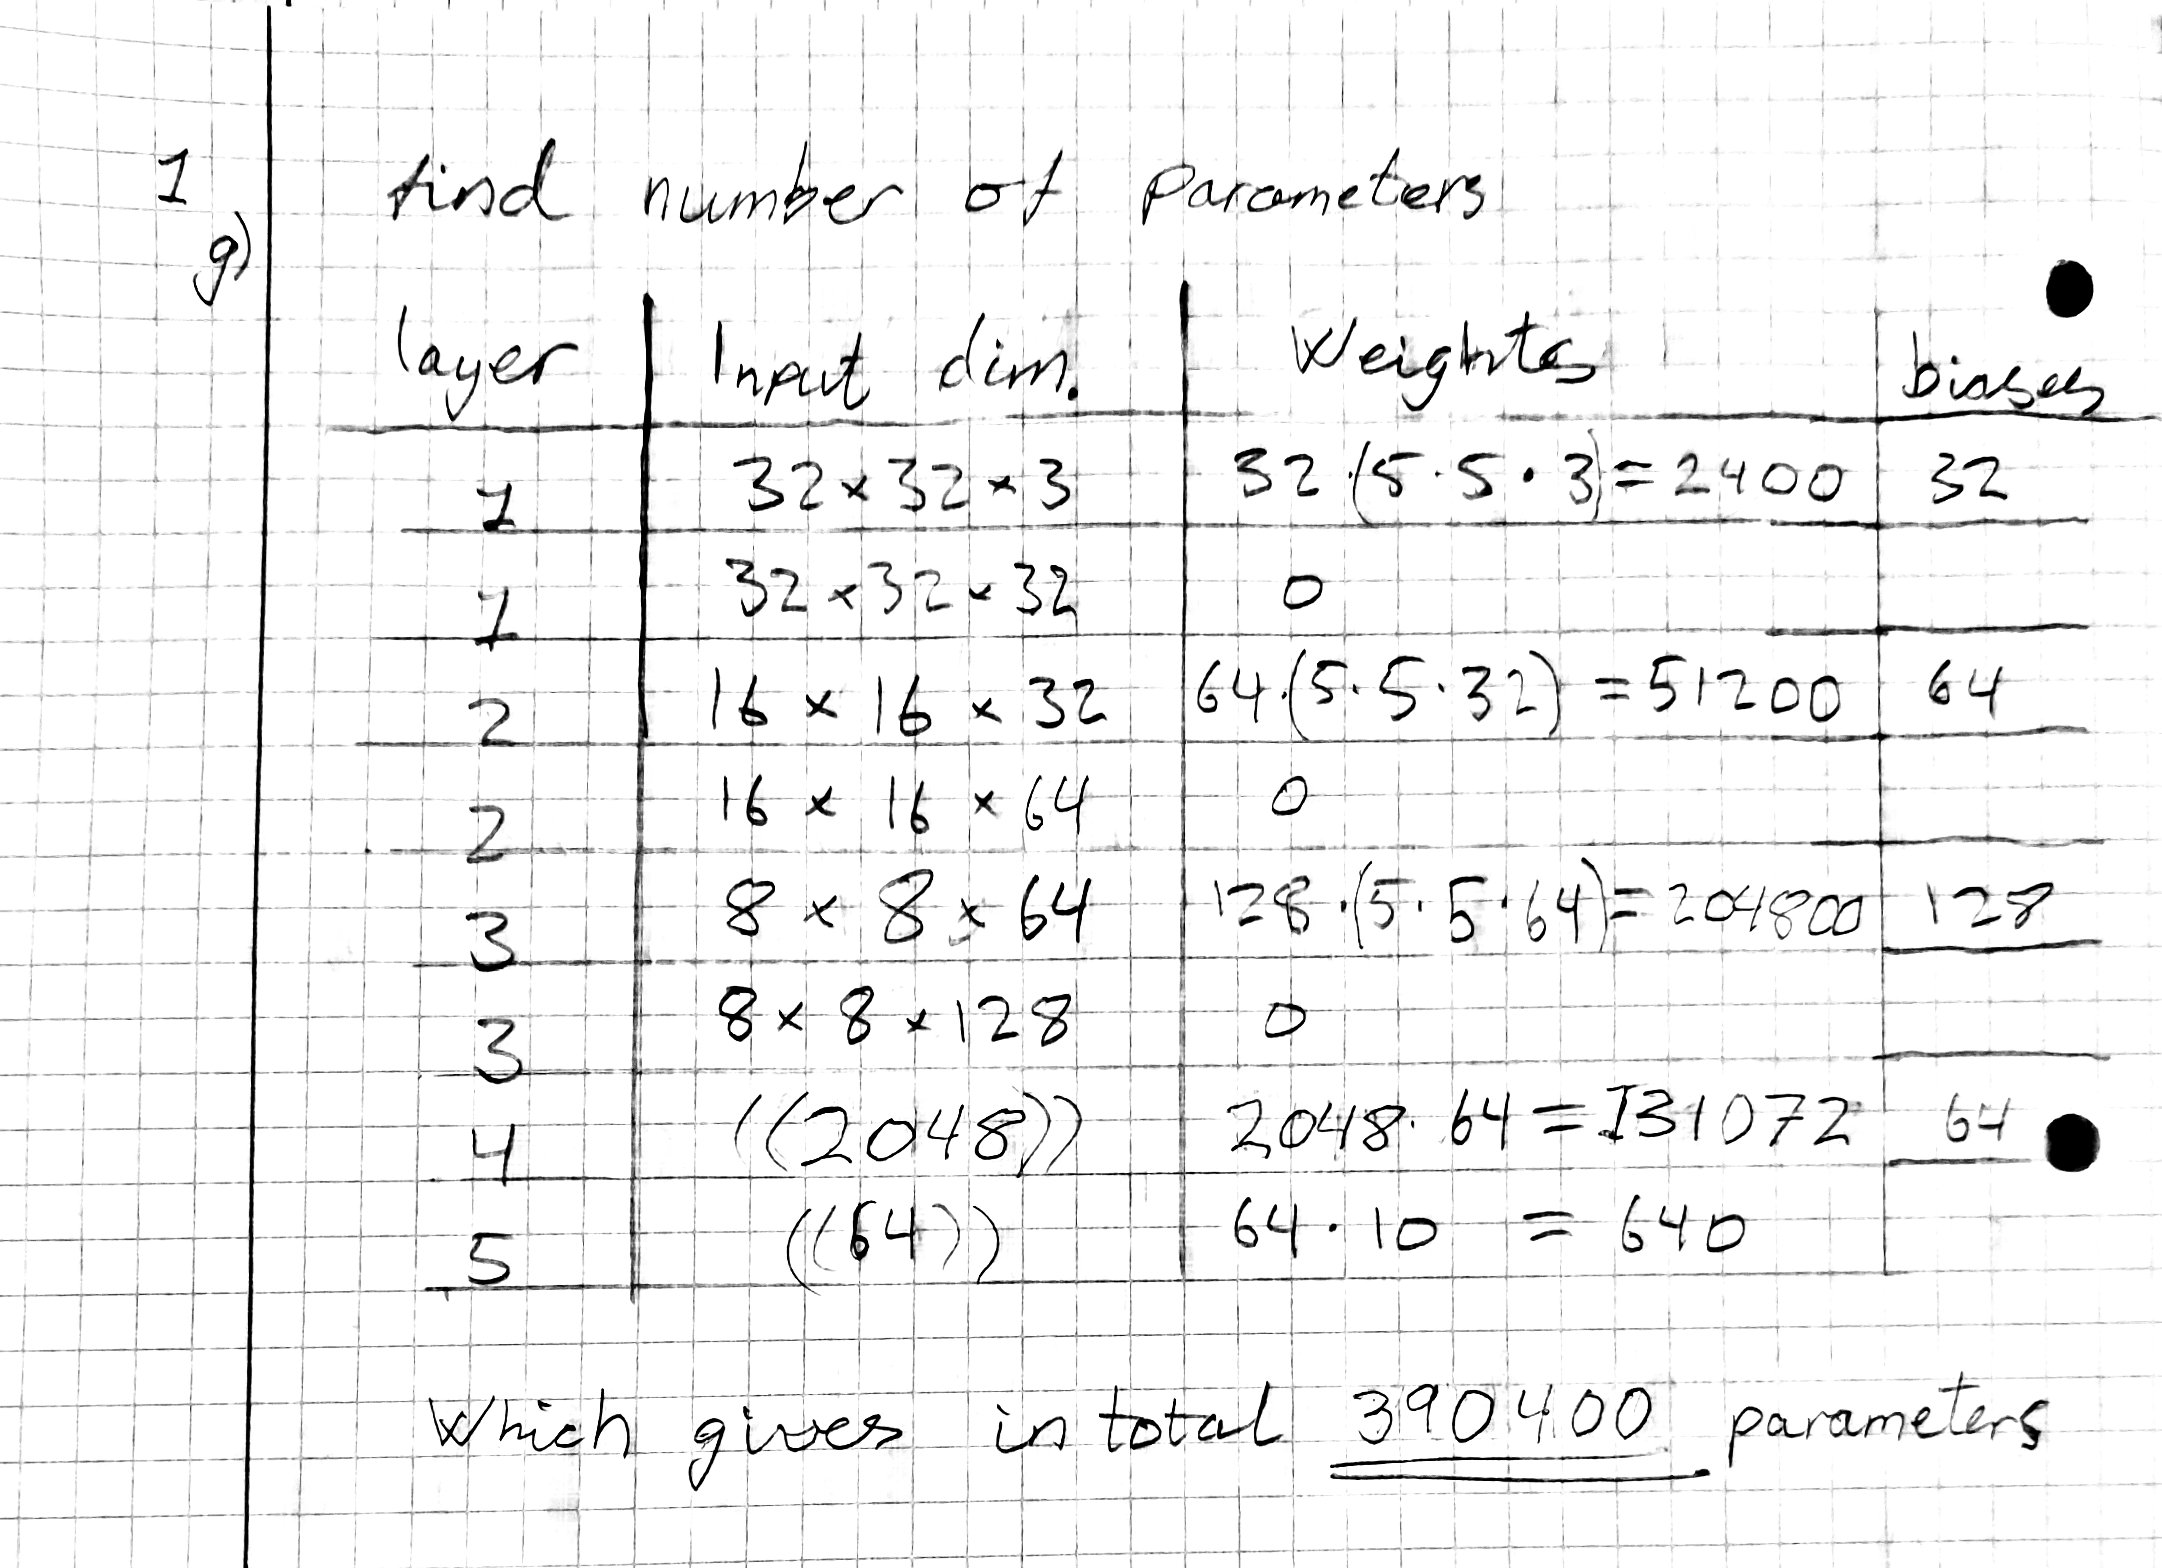 1
g)
find number of parameters
layer Input dim. Weights biases
1 32 × 32 × 3 32·(5·5·3) = 2400 32
1 32 × 32 × 32 0
2 16 × 16 × 32 64·(5·5·32) = 51200 64
2 16 × 16 × 64 0
3 8 × 8 × 64 128·(5·5·64) = 204800 128
3 8 × 8 × 128 0
4 ((2048)) 2048·64 = 131072 64
5 ((64)) 64·10 = 640
Which gives in total 390400 parameters